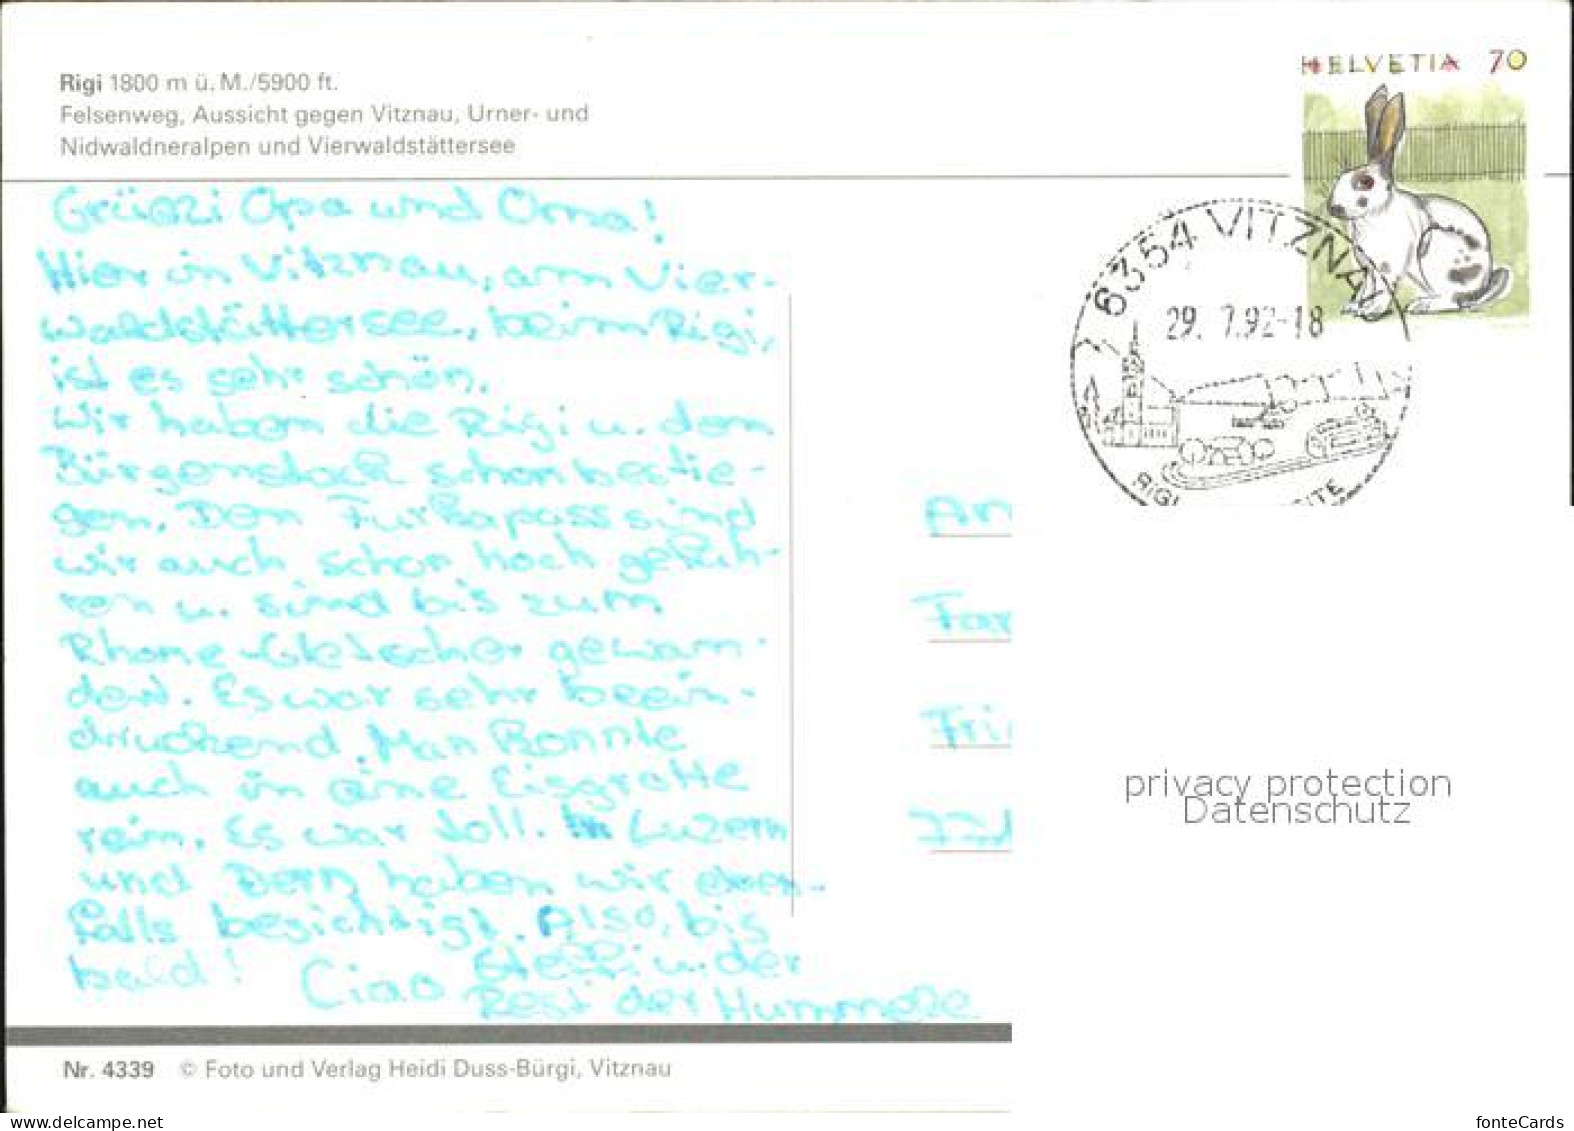 Rigi 1800 m ü. M./5900 ft.
Felsenweg, Aussicht gegen Vitznau, Urner- und
Nidwaldneralpen und Vierwaldstättersee
HELVETIA 70
6354 VITZNAU
29. 7.92-18
RIGI
Grüezi Opa und Oma!
Hier in Vitznau, am Vier-
waldstättersee, beim Rigi,
ist es sehr schön.
Wir haben die Rigi u. den
Bürgenstock schon bestie-
gen. Den Furkapass sind
wir auch schon hoch gefah-
ren u. sind bis zum
Rhone-Gletscher gewan-
dert. Es war sehr beein-
druckend. Man konnte
auch in eine Eisgrotte
rein. Es war toll. In Luzern
und Bern haben wir eben-
falls besichtigt. Also, bis
bald! Ciao Steffi u. der
Rest der Hummels
An
Fri
Nr. 4339 © Foto und Verlag Heidi Duss-Bürgi, Vitznau
privacy protection
Datenschutz
www.ansichtskarten-center.de
fonteCards